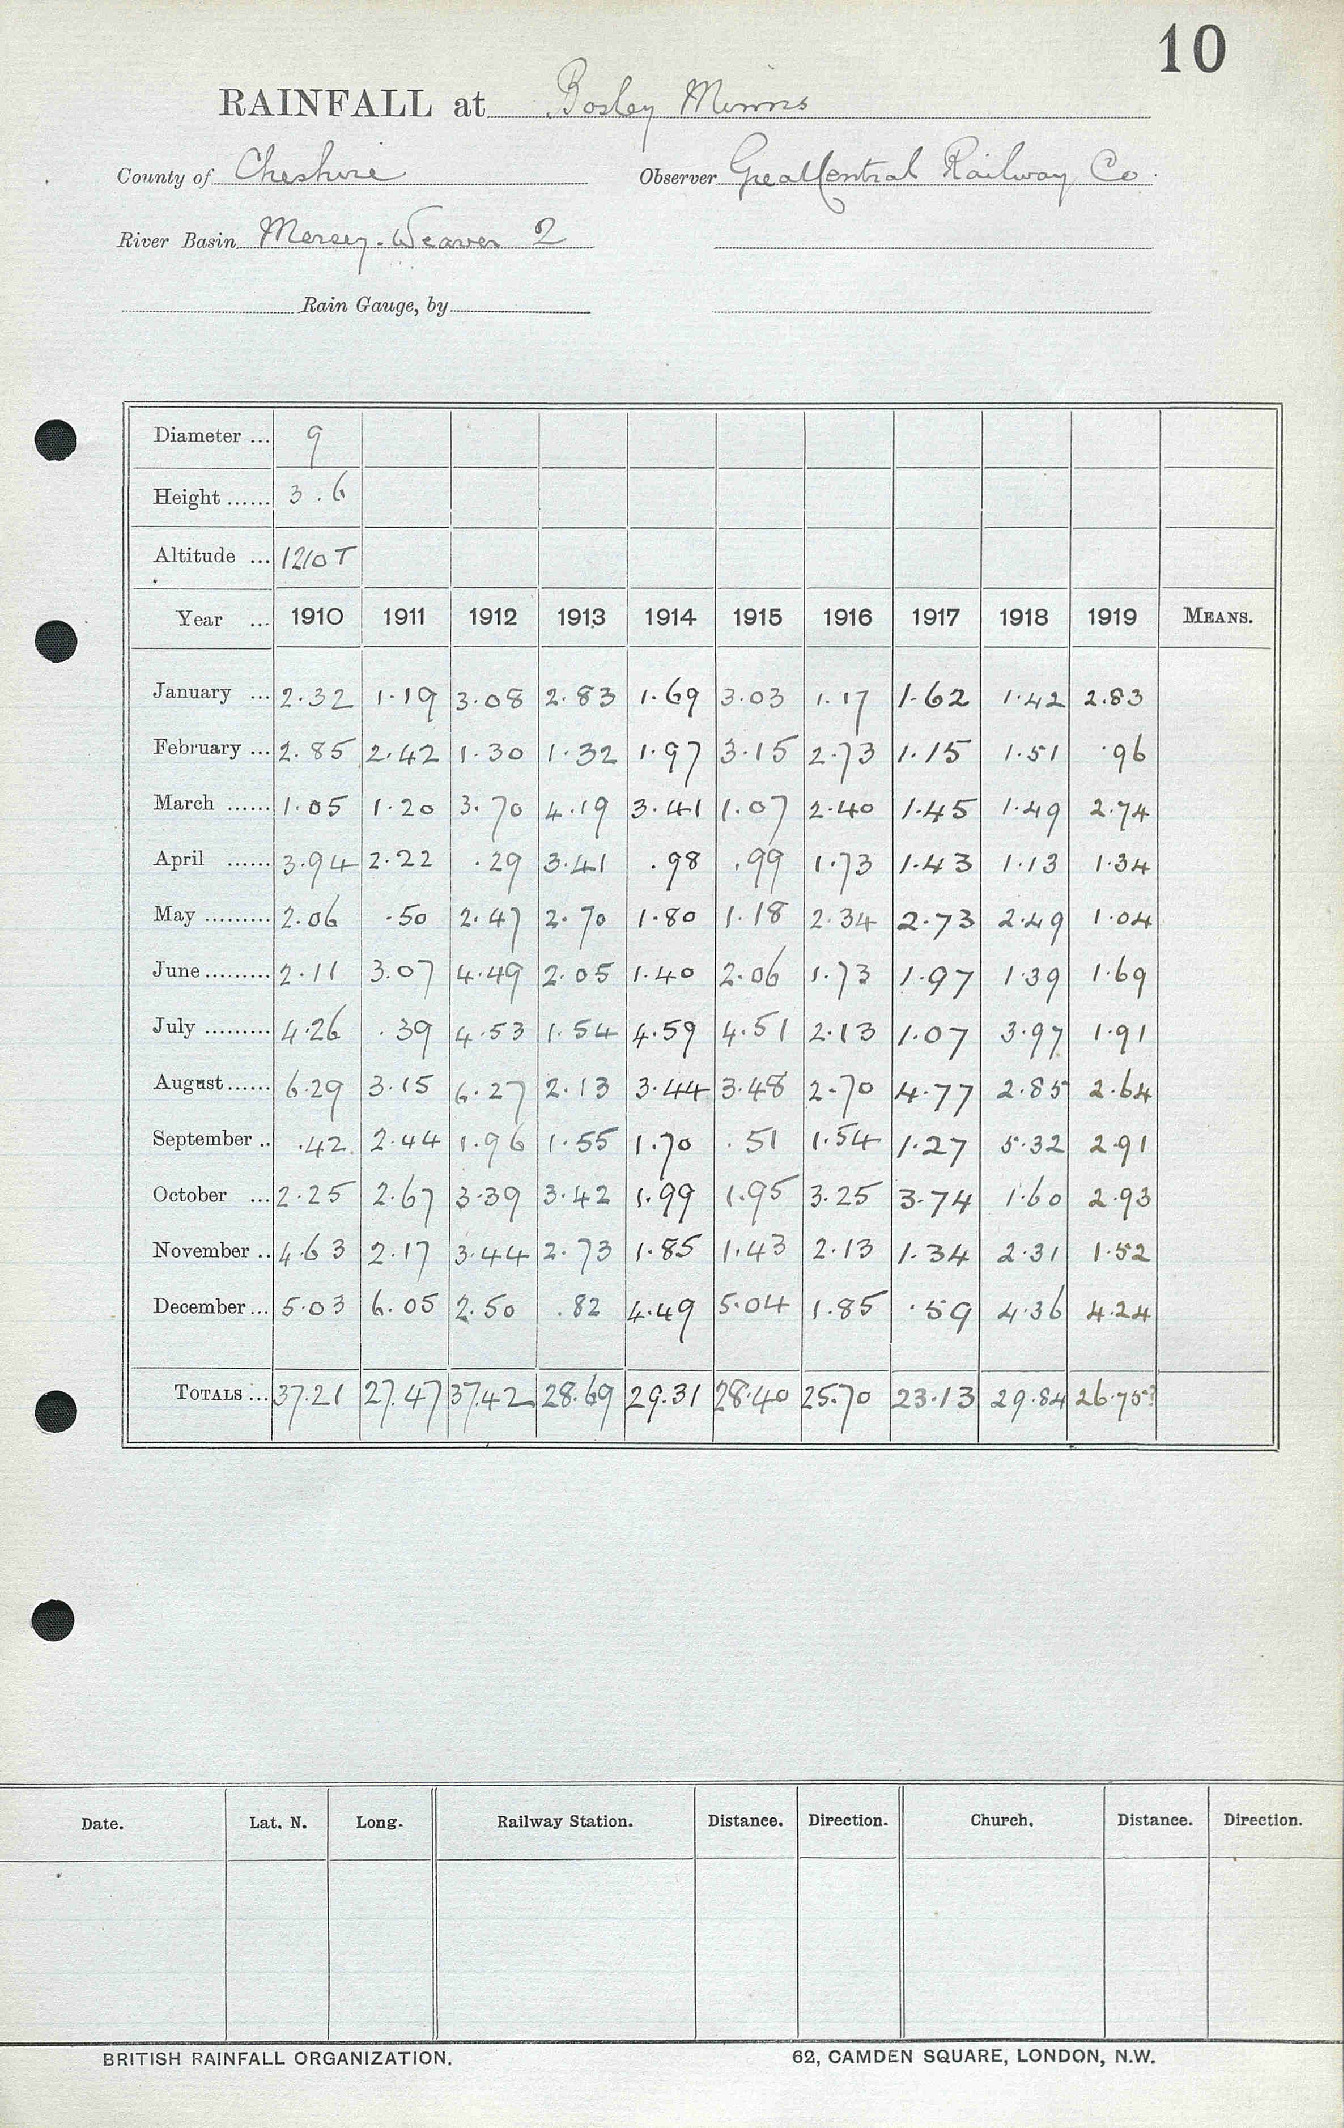 10
RAINFALL at Bosley Minns
County of Cheshire Observer Great Central Railway Co.
River Basin Mersey-Weaver 2
Rain Gauge, by
Diameter ... 9
Height ...... 3.6
Altitude ... 1210 T
Year ... 1910 1911 1912 1913 1914 1915 1916 1917 1918 1919 MEANS.
January ... 2.32 1.19 3.08 2.83 1.69 3.03 1.17 1.62 1.42 2.83
February ... 2.85 2.42 1.30 1.32 1.97 3.15 2.73 1.15 1.51 .96
March ...... 1.05 1.20 3.70 4.19 3.41 1.07 2.40 1.45 1.49 2.74
April ...... 3.94 2.22 .29 3.41 .98 .99 1.73 1.43 1.13 1.34
May ......... 2.06 .50 2.47 2.70 1.80 1.18 2.34 2.73 2.49 1.04
June ......... 2.11 3.07 4.49 2.05 1.40 2.06 1.73 1.97 1.39 1.69
July ......... 4.26 .39 4.53 1.54 4.59 4.51 2.13 1.07 3.97 1.91
August ...... 6.29 3.15 6.27 2.13 3.44 3.48 2.70 4.77 2.85 2.64
September .. .42 2.44 1.96 1.55 1.70 .51 1.54 1.27 5.32 2.91
October ... 2.25 2.67 3.39 3.42 1.99 1.95 3.25 3.74 1.60 2.93
November .. 4.63 2.17 3.44 2.73 1.85 1.43 2.13 1.34 2.31 1.52
December ... 5.03 6.05 2.50 .82 4.49 5.04 1.85 .59 4.36 4.24
TOTALS ... 37.21 27.47 37.42 28.69 29.31 28.40 25.70 23.13 29.84 26.75?
Date. Lat. N. Long. Railway Station. Distance. Direction. Church. Distance. Direction.
BRITISH RAINFALL ORGANIZATION. 62, CAMDEN SQUARE, LONDON, N.W.